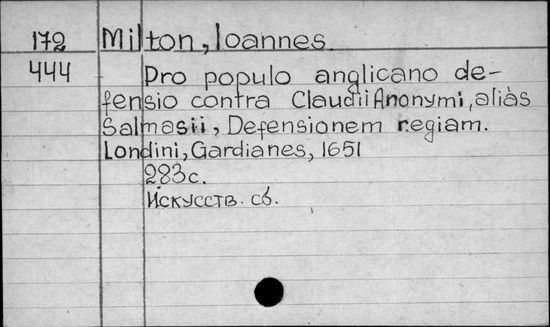 172 Milton, Ioannes
444 Pro populo anglicano de-
fensio contra Claudii Anonymi, aliàs
Salmasii, Defensionem regiam.
Londini, Gardianes, 1651
283с.
Искусств. сб.